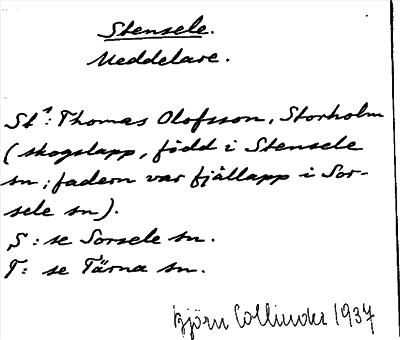 Stensele.
Meddelare.
St¹: Thomas Olofsson, Storholm
(skogslapp, född i Stensele
sn; fadern var fjällapp i Sor-
sele sn).
S: se Sorsele sn.
T: se Tärna sn.
Björn Collinder 1937